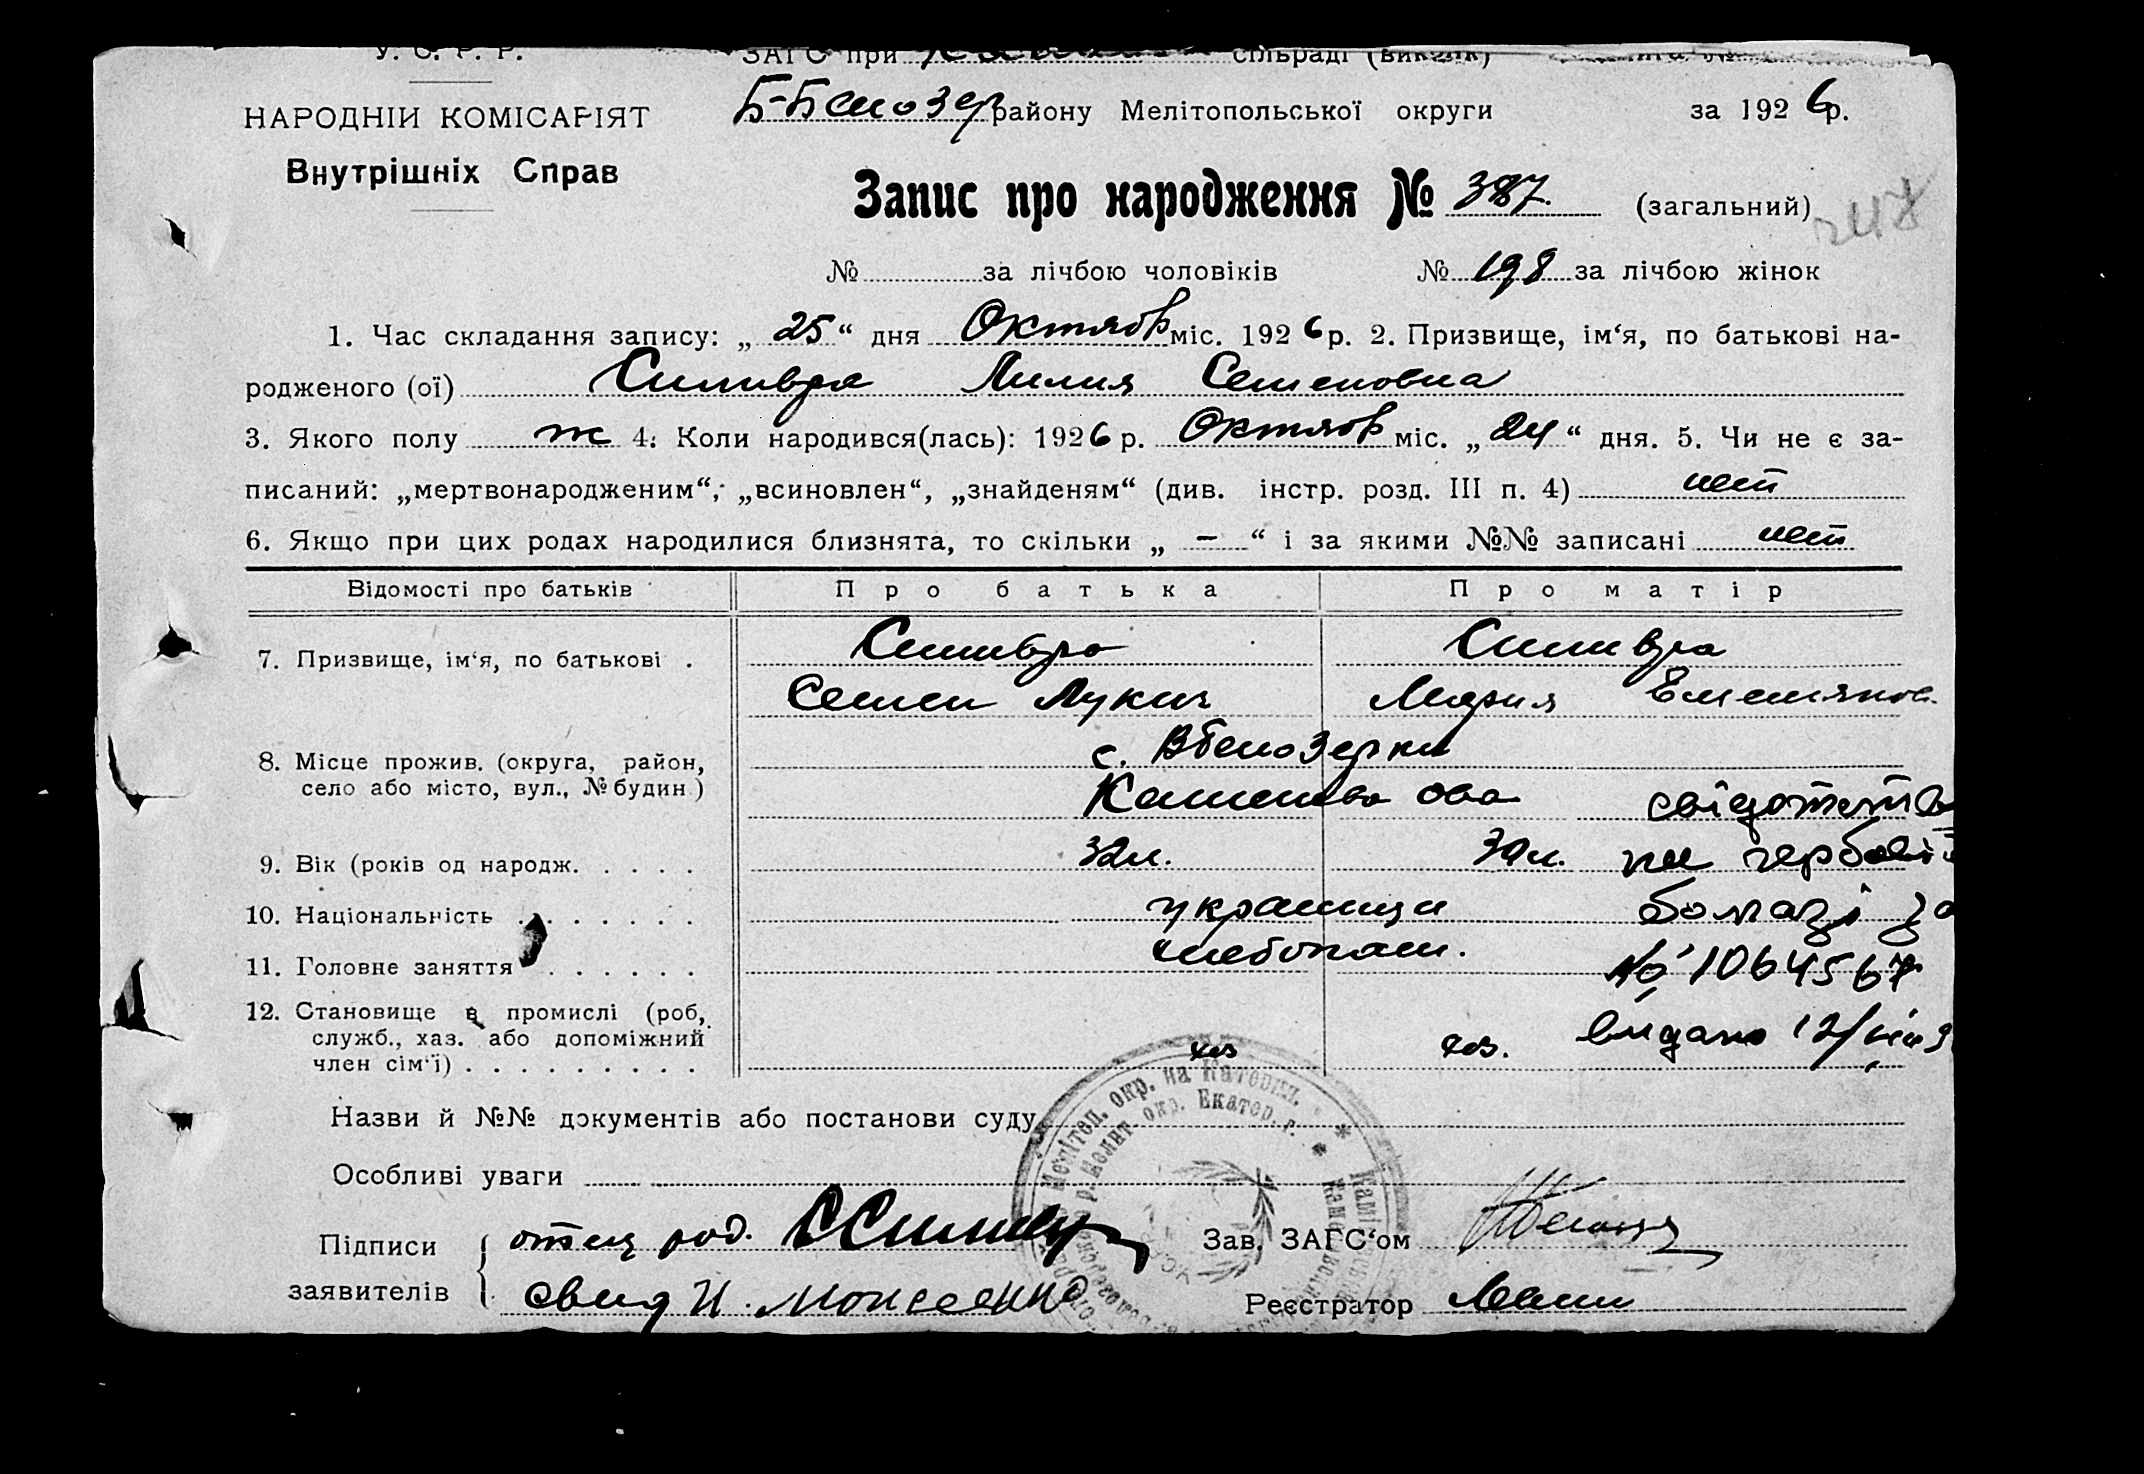 У. С. Р. Р. ЗАГС при сільраді
НАРОДНІЙ КОМІСАРІЯТ
Внутрішніх Справ
Б-Белозер району Мелітопольської округи за 1926 р.
Запис про народження № 387. (загальний)
№ за лічбою чоловіків № 198 за лічбою жінок
1. Час складання запису: „ 25 “ дня Октябр міс. 1926 р. 2. Призвище, ім‘я, по батькові на-
родженого (ої) Лилия Семеновна
3. Якого полу ж 4. Коли народився(лась): 1926 р. Октябр міс. „ 24 “ дня. 5. Чи не є за-
писаний: „мертвонародженим“, „всиновлен“, „знайденям“ (див. інстр. розд. III п. 4) нет
6. Якщо при цих родах народилися близнята, то скільки „ — “ і за якими №№ записані нет
Відомості про батьків Про батька Про матір
7. Призвище, ім‘я, по батькові .
Семен Лукич Мария Емельянов.
8. Місце прожив. (округа, район,
село або місто, вул., № будин.)
с. Белозерки
свідотство
9. Вік (років од народж. . . . . 32 л. 30 л. на гербові
10. Національність . . . . . . . украинци бомазі за
11. Головне заняття . . . . . . хлебопаш. № 1064567
12. Становище в промислі (роб,
служб., хаз. або допоміжний
член сім‘ї) . . . . . . . . . хоз хоз. видано 12/
Назви й №№ документів або постанови суду
Особливі уваги
Підписи
заявителів
отец род.
свид И. Моисеенко
Зав. ЗАГС‘ом
Реєстратор